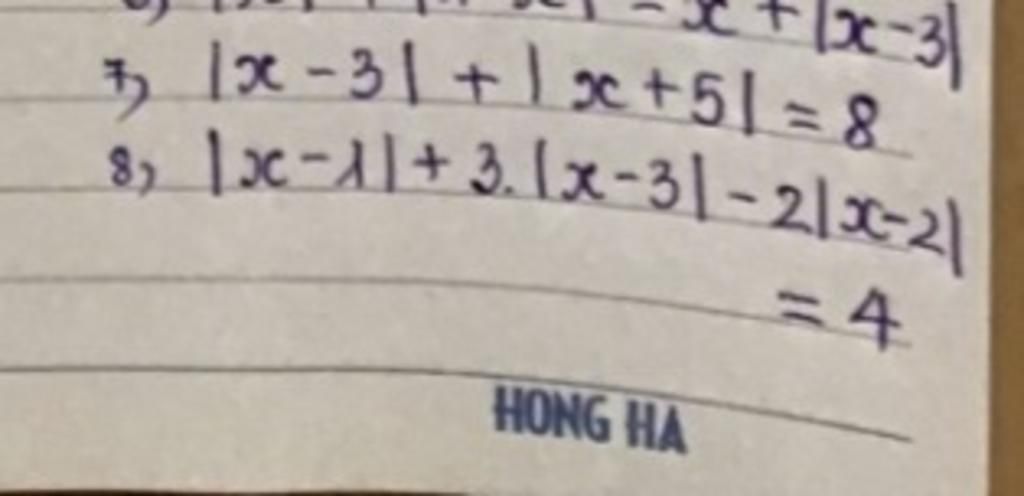 - x + |x-3|
7) |x - 3| + | x + 5| = 8
8) |x - 1| + 3. |x - 3| - 2|x - 2|
= 4
HONG HA